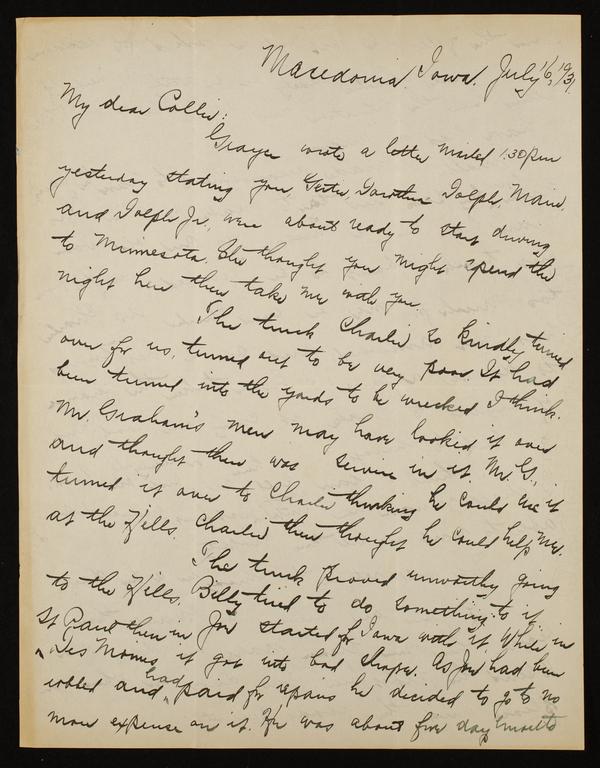 Macedonia, Iowa. July 16, 1931
My dear Collie:
Grayce wrote a letter mailed 1:30 pm
yesterday stating you, Dorothea Dolph, Marie,
and Dolph Jr., were about ready to start driving
to Minnesota. She thought you might spend the
night here then take me with you.
The truck Charlie so kindly turned
over for us, turned out to be very poor. It had
been turned into the yards to be wrecked I think.
Mr. Graham's men may have looked it over
and thought there was service in it. Mr. G.,
turned it over to Charlie thinking he could use it
at the Hills. Charlie then thought he could help me.
The truck proved unworthy going
to the Hills. Billy tried to do something to it in
St Paul then Joe started for Iowa with it. While in
Des Moines it got into bad shape. As Joe had been
robbed and had paid for repairs he decided to go to no
more expense on it. He was about five days